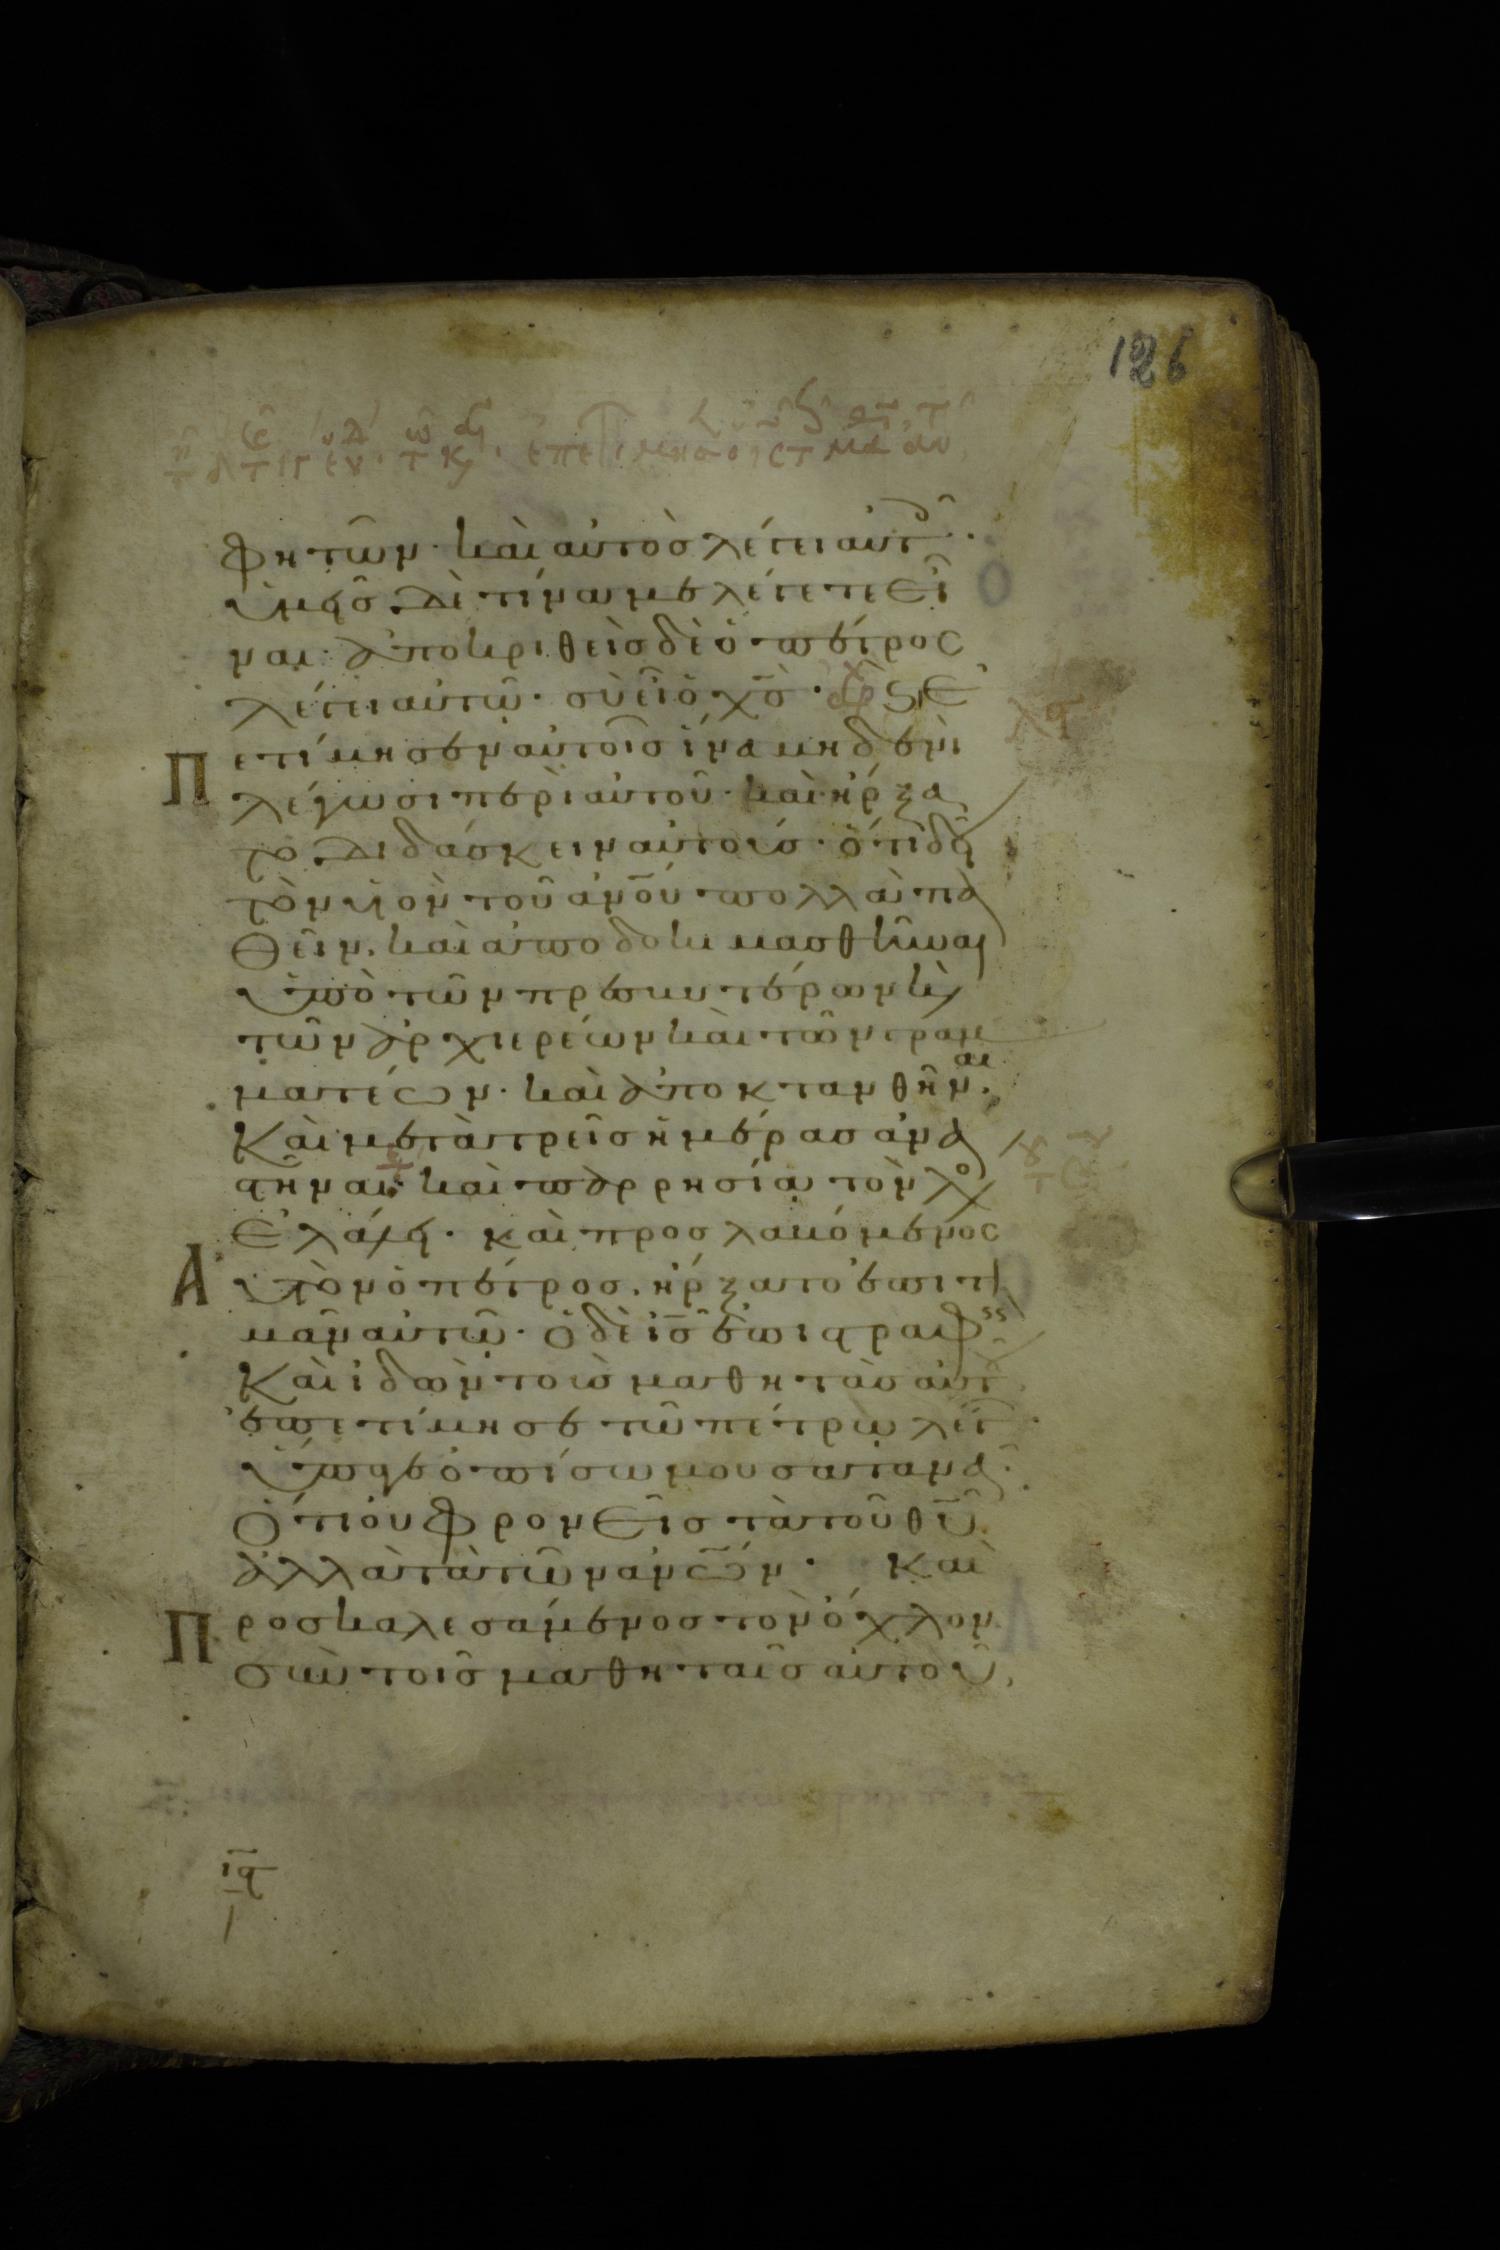 126
φητῶν· καὶ αὐτὸσ λέγει αὐτοῖ·
Ὑμεῖσ δὲ τίνα με λέγετε εἶ
ναι· ἀποκριθεὶσ δὲ ὁ πέτροσ
λέγει αὐτῶ· σὺ εἶ ὁ χ̅σ̅· ἀρχ ϛ Ἐ
Π ετίμησεν αὐτοῖσ ἵνα μηδενὶ
λέγωσι περὶ αὐτοῦ· καὶ ἤρξα
το διδάσκειν αὐτούσ· ὅτι δεῖ
τὸν υἱὸν τοῦ α̅ν̅ο̅υ̅ πολλὰ πα
θεῖν. καὶ ἀποδοκιμασθῆναι
ὑπὸ τῶν πρεσβυτέρων κ̀
τῶν ἀρχιερέων καὶ τῶν γραμ
ματέων· καὶ ἀποκτανθῆναι.
Καὶ μετὰ τρεῖσ ἡμέρασ ἀνα
στῆναι· καὶ παρρησία τὸν λο
Ἐλάλει· καὶ προσλαβόμενοσ
Α υτὸν ὁ πέτροσ. ἤρξατο ἐπιτι
μᾶν αὐτῶ· ὁ δὲ ι̅σ̅ ἐπιστραφεὶσ
Καὶ ἰδὼν τοὺσ μαθητὰσ αὐτ
ἐπετίμησε τῶ πέτρω λέγ·
Ὕπαγε ὀπίσω μου σατανᾶ·
Ὅτι οὐ φρονεῖσ τὰ τοῦ θ̅υ̅
ἀλλὰ τὰ τῶν α̅ν̅ω̅ν̅· Καὶ
Π ροσκαλεσάμενοσ τὸν ὄχλον
σὺν τοῖσ μαθηταῖσ αὐτοῦ,
ιϛ